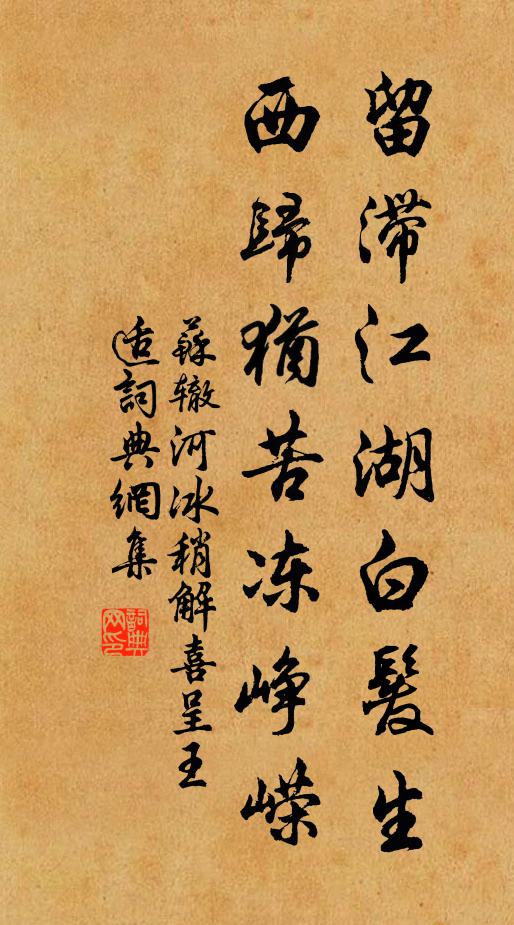 留滞江湖白髮生
西歸猶苦冻峥嵘
蘇辙河冰稍解喜呈王
适詞典網集
詞典網印